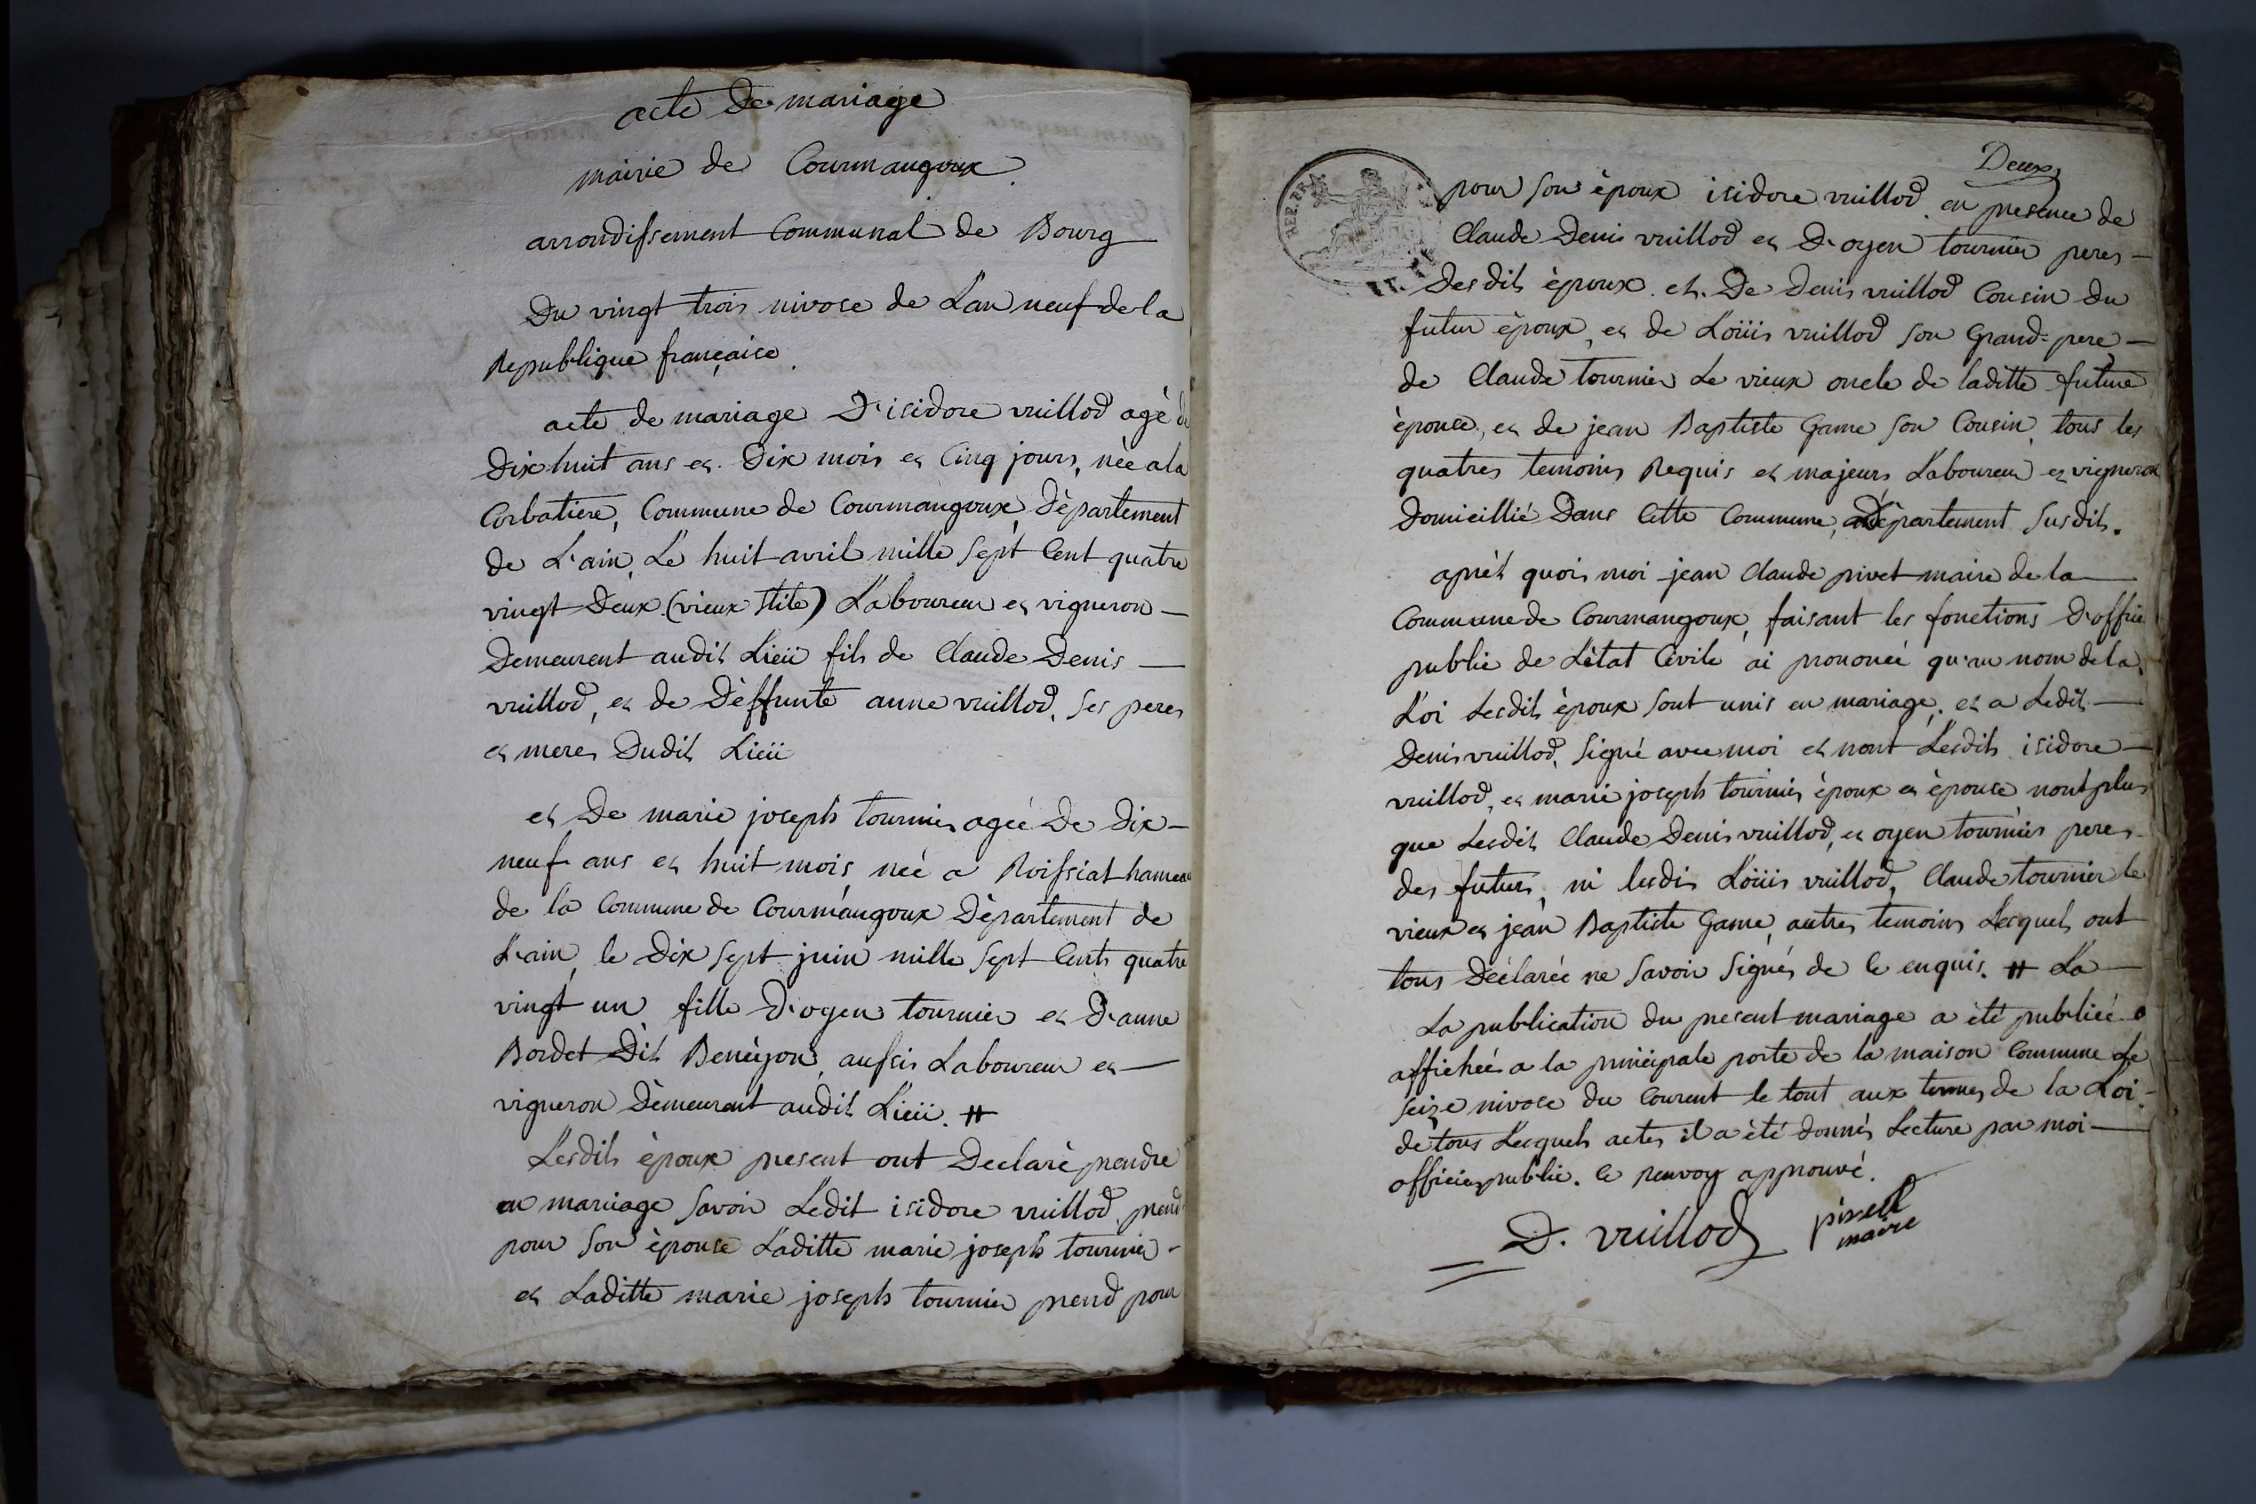 acte de mariage
mairie de Courmangoux.
arrondissement Communal de Bourg
Du vingt trois nivose de L'an neuf de la
Republique française.
acte de mariage D'isidore vuillod agè de
Dix huit ans et Dix mois et Cinq jours, nèe a la
Corbatiere, Commune de Courmangoux, Dèpartement
de L'ain, Le huit avril mille Sept Cent quatre
vingt Deux (vieux stile) Laboureur et vigneron
Demeurent audit Lieü fils de Claude Denis
vuillod, et de Dèffunte anne vuillod, Ses peres
et meres Dudit Lieü
et De marie joseph tournier agèe De Dix-
neuf ans et huit mois, nèé a Roissiat hameau
de la Commune de Courmangoux Dèpartement de
L'ain, le Dix Sept juin mille Sept Cents quatre
vingt un fille D'oyen tournier et D'anne
Bordet Dit Benèyon, aussis Laboureur et
vigneron Dèmeurant audit Lieü. #
Lesdits èpoux present ont Declarè prendre
en mariage Savoir Ledit isidore vuillod, prend
pour Son èpouse Laditte marie joseph tournier
et Laditte marie joseph tournier prend pour
Deux
REP. FRA.
pour son èpoux isidore vuillod, en presence de
Claude Denis vuillod et D'oyen tournier peres
Desdits èpoux et De Denis vuillod Cousin du
futur èpoux, et de Loüis vuillod son Grand-pere
de Claude tournier Le vieux oncle de laditte future
èpouse, et de jean Baptiste Game son Cousin, tous les
quatres temoins Requis et majeurs Laboureur et vigneron
Domicillié Dans Cette Commune, Dèpartement susdit.
après quois moi jean Claude pivet maire de la
Commune de Courmangoux, faisant les fonctions D'officier
public de L'ètat Civile ai prononcé qu'au nom de la
Loi Lesdits èpoux sont unis en mariage, et a Ledit
Denis vuillod, Signé avec moi et nont Lesdits isidore
vuillod, et marie joseph tournier èpoux et èpouse nont plus
que Lesdits Claude Denis vuillod, et oyen tournier peres
des futurs, ni lesdis Loüis vuillod, Claude tournier le
vieux et jean Baptiste Game, autres temoins Lesquels ont
tous Déclarée ne Savoir Signés de Ce enquis. # La
La publication du present mariage a été publiée
affichée a la principale porte de la maison Commune Le
seize nivose du Courent le tout aux termes de la Loi
de tous Lesquels actes il a été donnés Lecture par moi
officier public. le renvoy approuvé.
D. vuillod pivet
maire